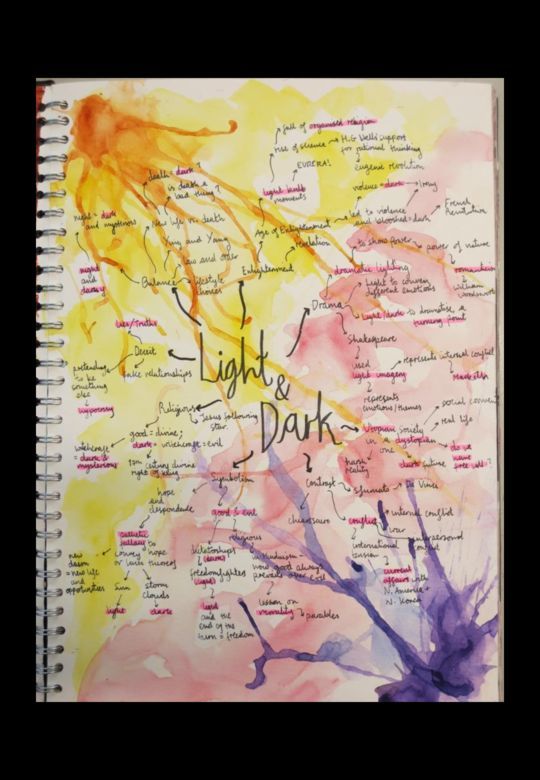 fall of organised religion
rise of science
H.G Well's support
for rational thinking
EUREKA!
eugenic revolution
light bulb
moments
death = dark?
is death a
bad thing?
violence = dark
irony
night = dark
and mysterious
New life vs. death
Age of Enlightenment
led to violence
and bloodshed = dark
French
Revolution
revelation
Ying and Yang
law and order
to show power
power of nature
night
and
Balance
lifestyle
choices
Enlightenment
dramatic lighting
romanticism
William
Wordsworth
light to convey
different emotions
Drama
light/dark to dramatise a
turning point
lies/truths
Deceit
fake relationships
pretending
to be
something
else
hypocrisy
Light
&
Dark
Shakespeare
used
light imagery
represents internal conflict
Macbeth
represents
emotions/themes
Religious
Jesus following
star.
good = divine;
witchcraft = evil
witchcraft
= dark &
mysterious
century divine
right of king
Utopian society
in a dystopian
one
real life
harsh
reality
dark future
Symbolism
Contrast
sfumato
Da Vinci
hope
and
good & evil
chiaroscuro
conflict
internal conflict
war
interpersonal
conflict
international
tension
religious
pathetic
fallacy to
convey hope
new
dawn
= new life
and
opportunities
Sun
light
storm
clouds
dark
dictatorships
freedom fighters
light
light
and the
end of the
= freedom
how good always
prevails over evil
lesson on
morality
parables
current
affairs with
N. America +
N. Korea